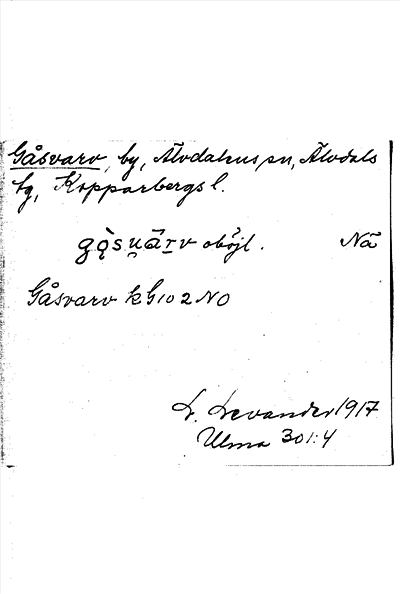 Gåsvarv, by, Älvdalens sn, Älvdals
tg, Kopparbergs l.
oböjl. Nä
Gåsvarv k G102 NO
L. Levander 1917
Ulma 301:4